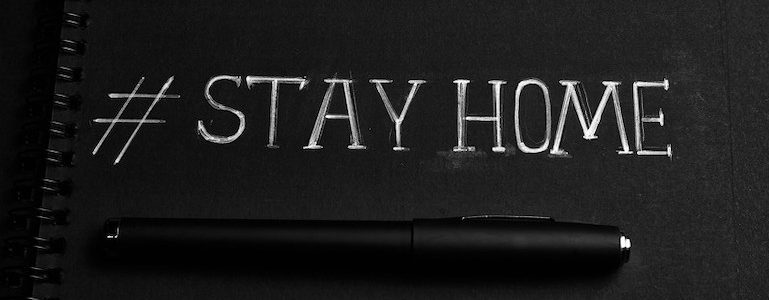 # STAY HOME